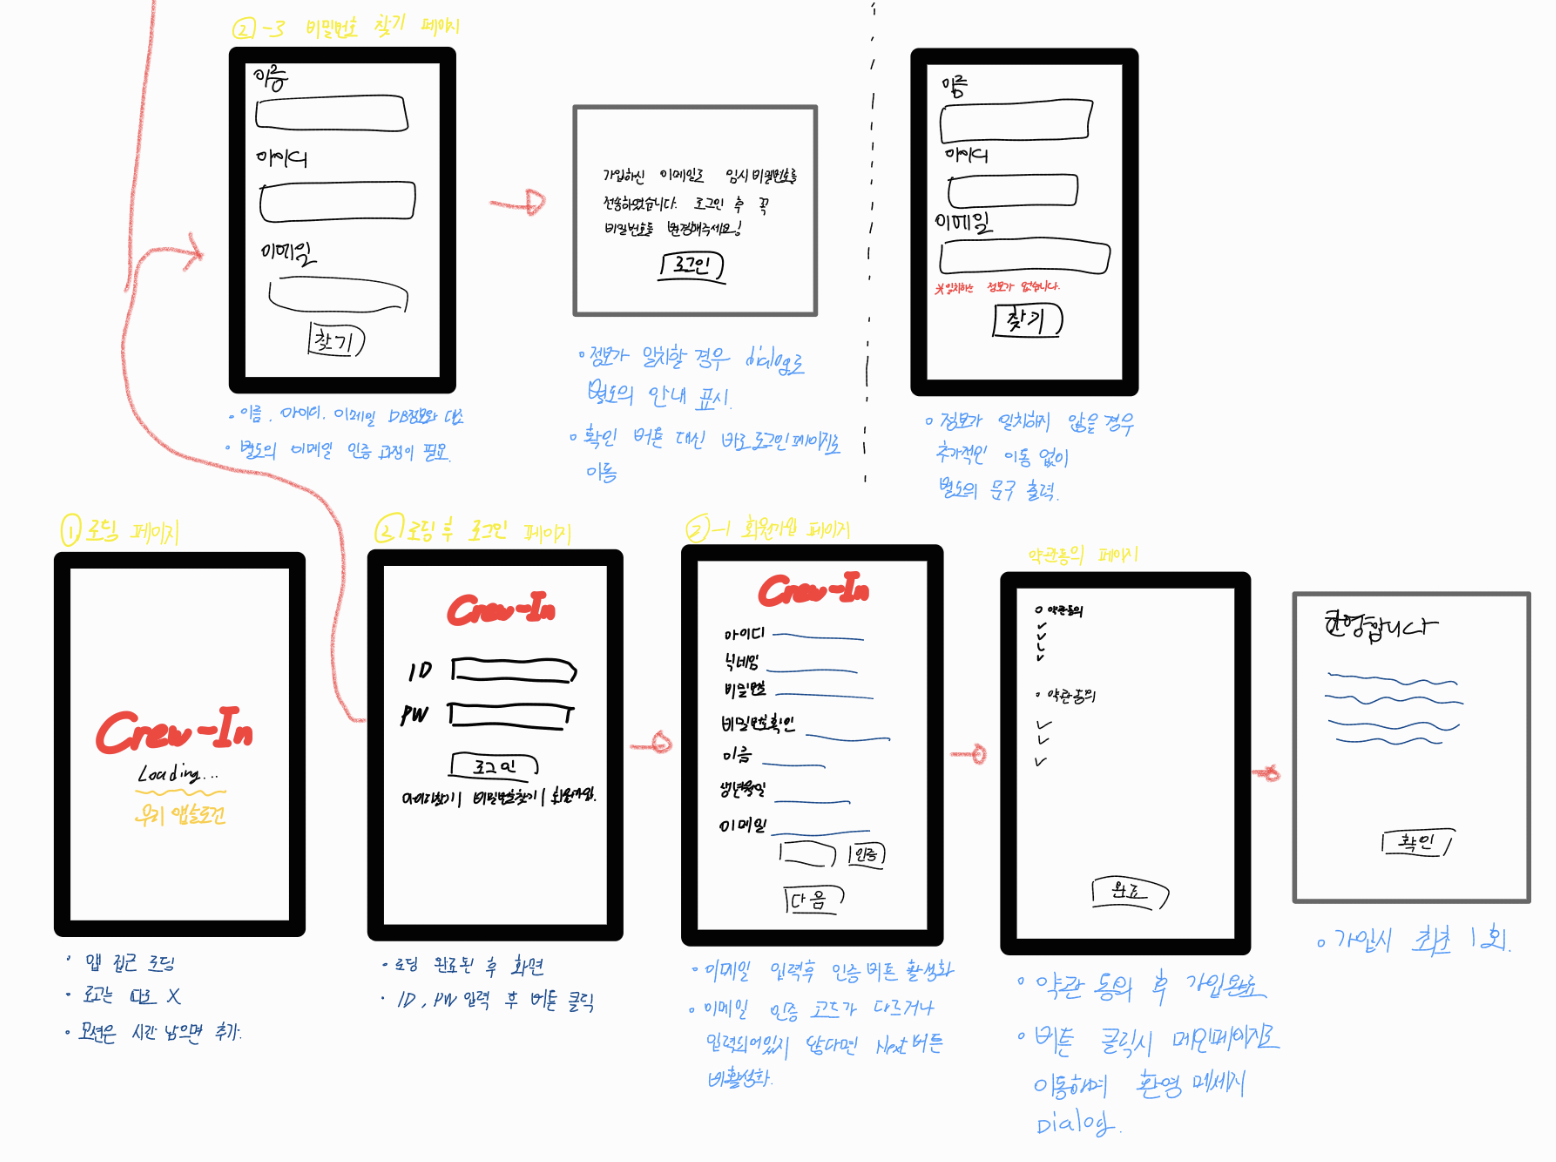 ②-3 비밀번호 찾기 페이지
이름
아이디
이메일
찾기
• 이름, 아이디, 이메일 DB정보와 대조
• 별도의 이메일 인증 과정이 필요.
가입하신 이메일로 임시 비밀번호를
전송하였습니다. 로그인 후 꼭
비밀번호를 변경해주세요!
로그인
• 정보가 일치할 경우 dialog로
별도의 안내 표시.
• 확인 버튼 대신 바로 로그인페이지로
이동
이름
아이디
이메일
※일치하는 정보가 없습니다.
찾기
• 정보가 일치하지 않을 경우
추가적인 이동 없이
별도의 문구 출력.
① 로딩 페이지
Crew-In
Loading...
우리 앱슬로건
• 앱 접근 로딩
• 로고는 따로 X
• 모션은 시간 남으면 추가.
②로딩 후 로그인 페이지
Crew-In
ID
PW
로그인
아이디찾기 | 비밀번호찾기 | 회원가입.
• 로딩 완료된 후 화면
• ID, PW 입력 후 버튼 클릭
②-1 회원가입 페이지
Crew-In
아이디
닉네임
비밀번호
비밀번호확인
이름
생년월일
이메일
인증
다음
• 이메일 입력후 인증 버튼 활성화
• 이메일 인증 코드가 다르거나
입력되어있지 않다면 Next 버튼
비활성화.
약관동의 페이지
○ 약관동의
• 약관동의
완료
• 약관 동의 후 가입완료
• 버튼 클릭시 메인페이지로
이동하며 환영 메세지
Dialog.
환영합니다
확인
• 가입시 최초 1회.